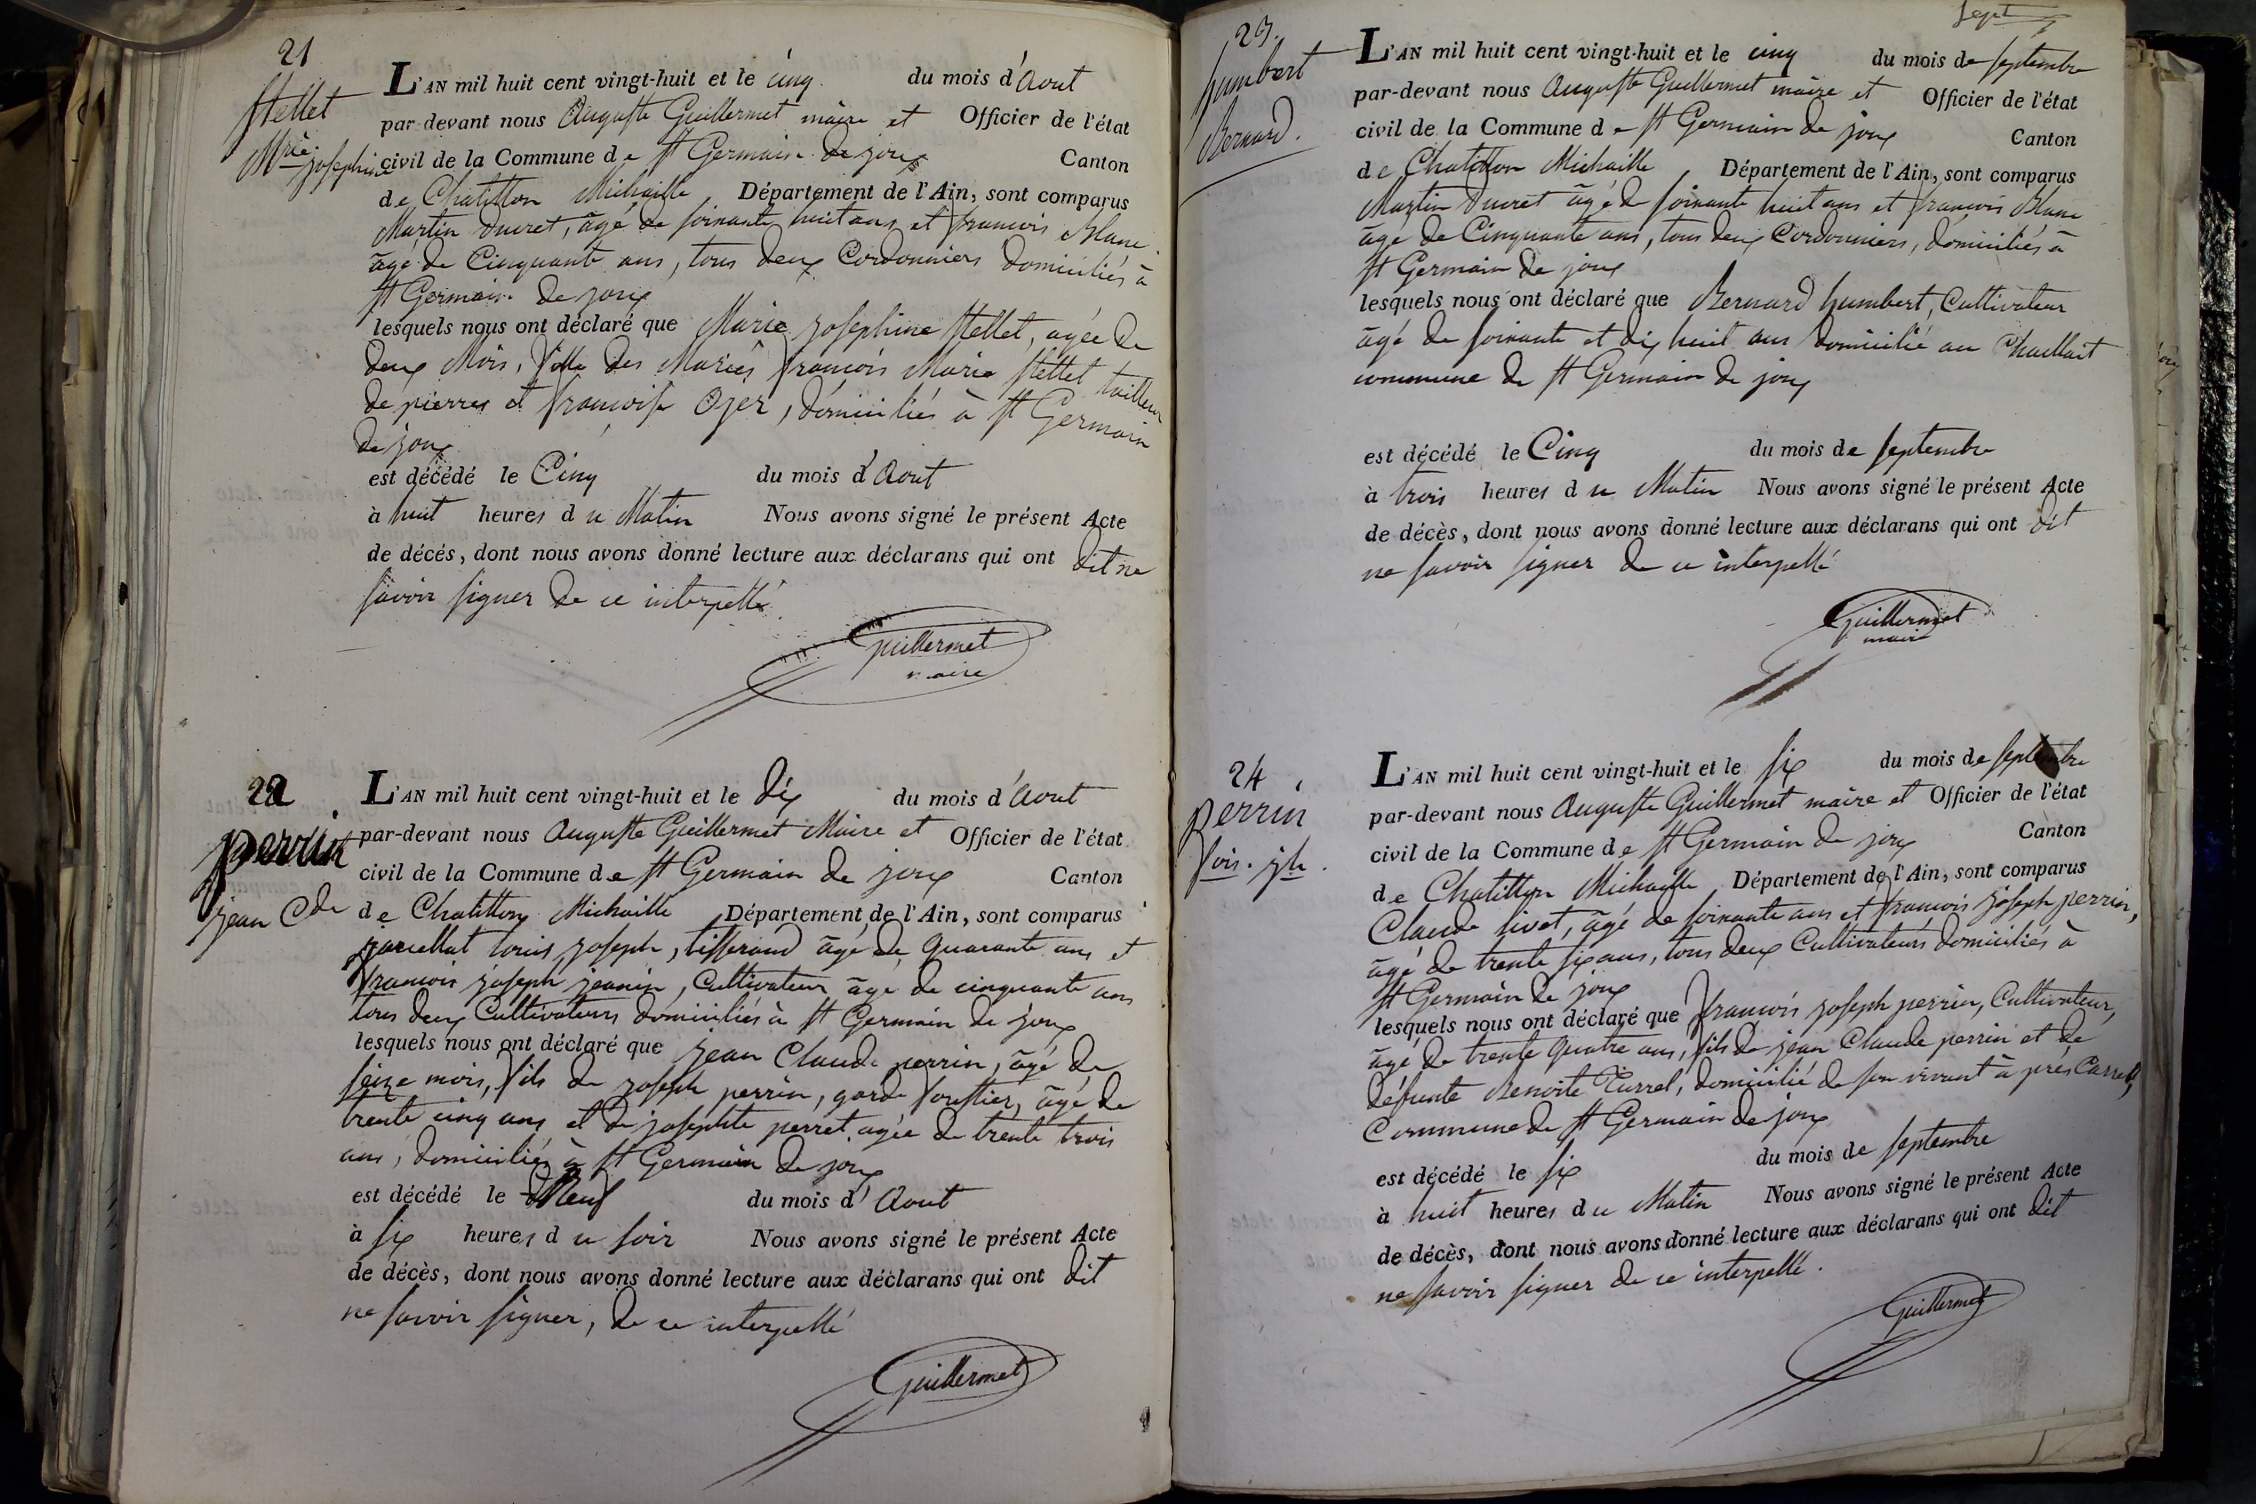 21
Stellet
Mrie. josephine
L'AN mil huit cent vingt-huit et le cinq du mois d'Aout
par-devant nous Auguste Guillermet maire et Officier de l'état
civil de la Commune de St Germain de joux Canton
de Chatillon Michaille Département de l'Ain, sont comparus
Martin Ducret, âgé de soixante huit ans et francois Blanc
âgé de Cinquante ans, tous deux Cordonniers domiciliés à
St Germain de joux
lesquels nous ont déclaré que Marie josephine Stellet, agée de
deux Mois, fille des Mariés francois Marie Stellet tailleur
de pierres et francoise Ojer, domiciliés à St Germain
de joux
est décédé le Cinq du mois d'Aout
à huit heures du Matin Nous avons signé le présent Acte
de décès, dont nous avons donné lecture aux déclarans qui ont dit ne
savoir signer de ce interpellé
Guillermet
maire
22
perrin
jean Cde
L'AN mil huit cent vingt-huit et le dix du mois d'Aout
par-devant nous Auguste Guillermet Maire et Officier de l'état
civil de la Commune de St Germain de joux Canton
de Chatillon Michaille Département de l'Ain, sont comparus
louis joseph, tisserand âgé de quarante ans et
francois joseph jeanin, Cultivateur âgé de cinquante ans
tous deux Cultivateurs domiciliés à St Germain de joux
lesquels nous ont déclaré que jean Claude perrin, âgé de
seize mois, fils de joseph perrin, garde forestier, âgé de
trente cinq ans et de josephte perret agée de trente trois
ans, domiciliés à St Germain de joux
est décédé le Neuf du mois d'Aout
à six heures du soir Nous avons signé le présent Acte
de décès, dont nous avons donné lecture aux déclarans qui ont dit
ne savoir signer, de ce interpellé
Guillermet
Sept
23.
humbert
Bernard.
L'AN mil huit cent vingt-huit et le cinq du mois de septembre
par-devant nous Auguste Guillermet maire et Officier de l'état
civil de la Commune de St Germain de joux Canton
de Chatillon Michaille Département de l'Ain, sont comparus
Martin Ducret âgé de soixante huit ans et francois Blanc
âgé de Cinquante ans, tous deux Cordonniers, domiciliés à
St Germain de joux
lesquels nous ont déclaré que Bernard humbert, Cultivateur
âgé de soixante et dix huit ans domicilié au
commune de St Germain de joux
est décédé le Cinq du mois de septembre
à trois heures du Matin Nous avons signé le présent Acte
de décès, dont nous avons donné lecture aux déclarans qui ont dit
ne savoir signer de ce interpellé
Guillermet
maire
24
perrin
fois. jh.
L'AN mil huit cent vingt-huit et le six du mois de septembre
par-devant nous Auguste Guillermet maire et Officier de l'état
civil de la Commune de St Germain de joux Canton
de Chatillon Michaille Département de l'Ain, sont comparus
Claude livet, âgé de soixante ans et francois joseph perrin,
âgé de trente six ans, tous deux Cultivateurs domiciliés à
St Germain de joux
lesquels nous ont déclaré que francois joseph perrin, Cultivateur,
âgé de trente quatre ans, fils de jean Claude perrin et de
défunte Benoite Turrel, domicilié de son vivant à prés
Commune de St Germain de joux
est décédé le six du mois de septembre
à huit heures du Matin Nous avons signé le présent Acte
de décès, dont nous avons donné lecture aux déclarans qui ont dit
ne savoir signer de ce interpellé.
Guillermet